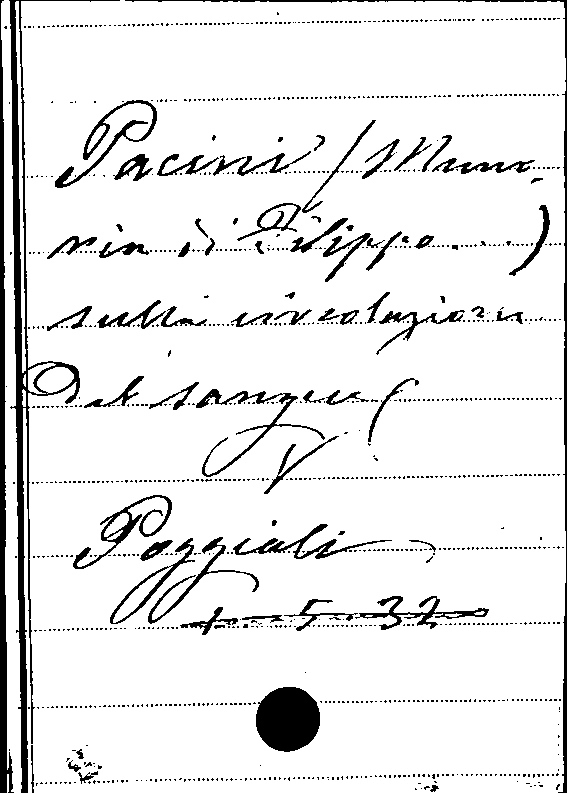 Pacini (Memo-
ria di Filippo....)
sulla circolazione
del sangue (
V
Poggiali
1. 5. 32